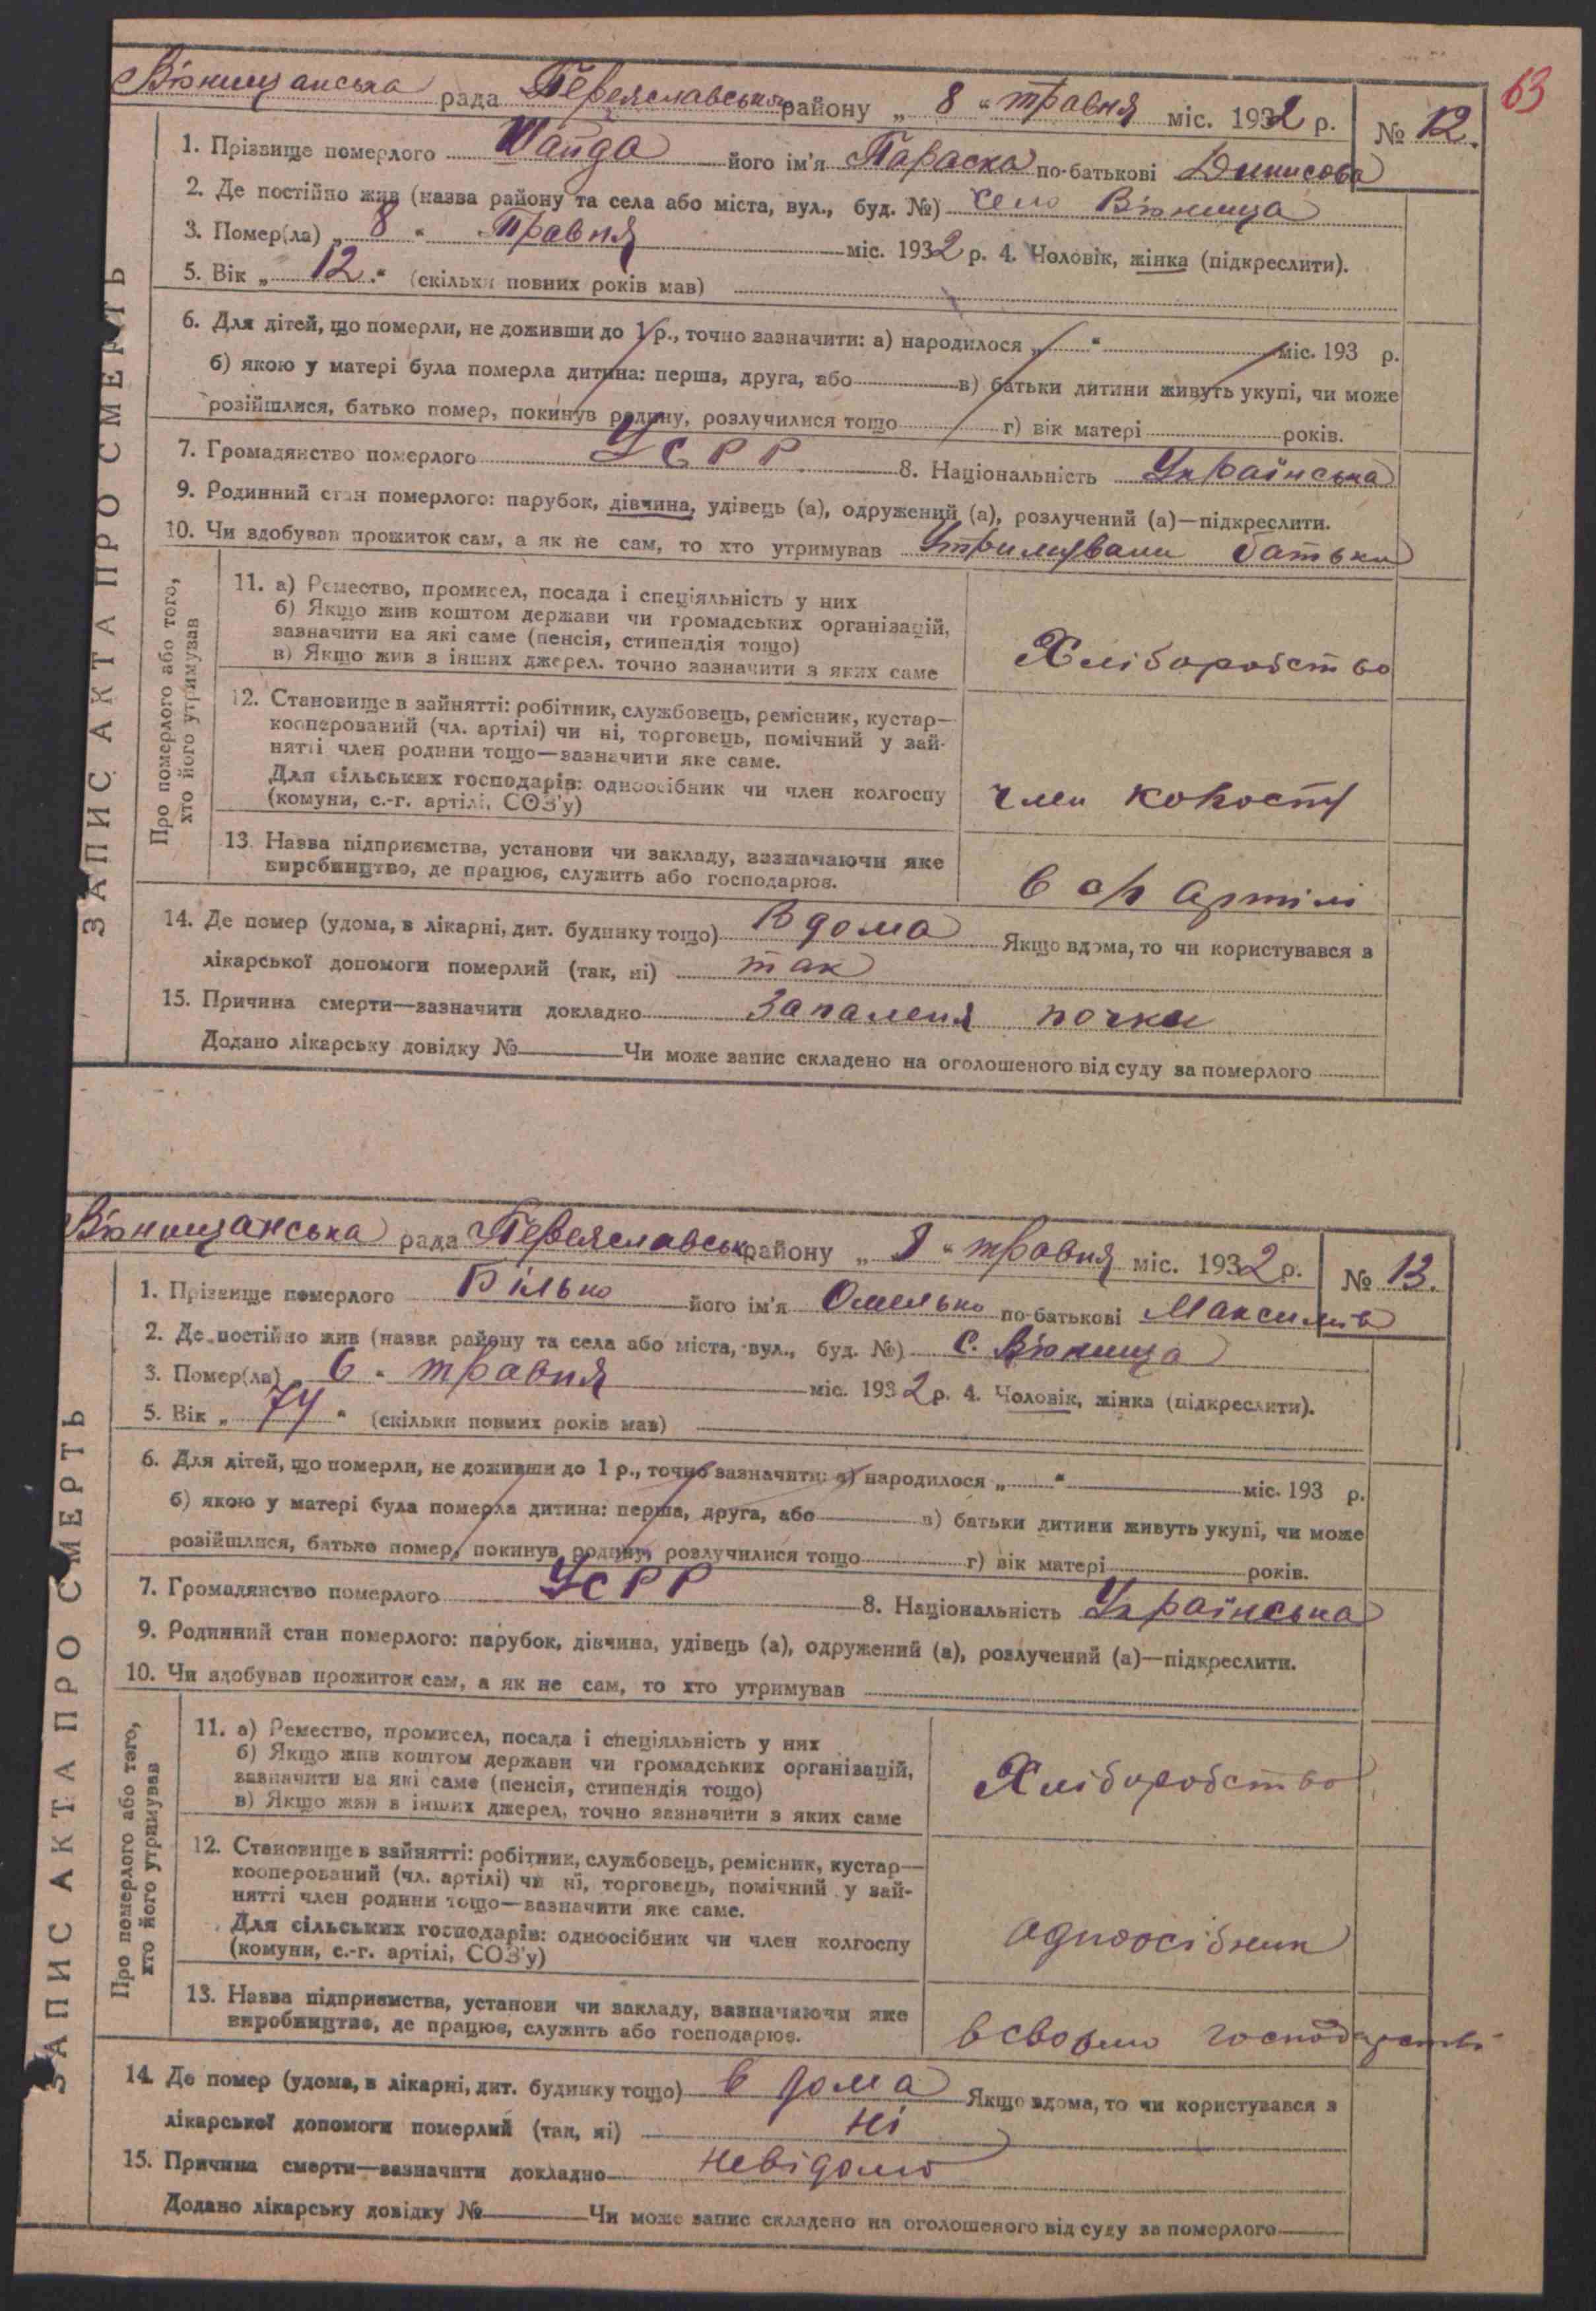 63
Вюнищанська рада Переяславськ району „ 8 “ травня міс. 1932 р. № 12.
1. Прізвище померлого Шайда його ім'я Параска по-батькові Динисова
2. Де постійно жив (назва району та села або міста, вул., буд. №) село Вюнища
3. Помер(ла) „ 8 “ травня міс. 1932 р. 4. Чоловік, жінка (підкреслити).
5. Вік „ 12 “ (скільки повних років мав)
6. Для дітей, що померли, не доживши до 1 р., точно зазначити: а) народилося „ “ міс. 193 р.
б) якою у матері була померла дитина: перша, друга, або в) батьки дитини живуть укупі, чи може
розійшлися, батько помер, покинув родину, розлучилися тощо г) вік матері років.
7. Громадянство померлого УСРР 8. Національність Українська
9. Родинний стан померлого: парубок, дівчина, удівець (а), одружений (а), розлучений (а)—підкреслити.
10. Чи здобував прожиток сам, а як не сам, то хто утримував Утримували батьки
ЗАПИС АКТА ПРО СМЕРТЬ
Про померлого або того, хто його утримував
11. а) Ремество, промисел, посада і спеціяльність у них
б) Якщо жив коштом держави чи громадських організацій,
зазначити на які саме (пенсія, стипендія тощо)
в) Якщо жив з інших джерел, точно зазначити з яких саме
Хліборобство
12. Становище в зайнятті: робітник, службовець, ремісник, кустар—
кооперований (чл. артілі) чи ні, торговець, помічний у зай-
нятті член родини тощо—зазначити яке саме.
Для сільських господарів: одноосібник чи член колгоспу
(комуни, с.-г. артілі, СОЗ'у)
член
13. Назва підприємства, установи чи закладу, зазначаючи яке
виробництво, де працює, служить або господарює.
в с/г артілі
14. Де помер (удома, в лікарні, дит. будинку тощо) Вдома Якщо вдома, то чи користувався з
лікарської допомоги померлий (так, ні) так
15. Причина смерти—зазначити докладно Запаленя почки
Додано лікарську довідку № Чи може запис складено на оголошеного від суду за померлого
Вюнищанська рада Переяславськ району „ 8 “ травня міс. 1932 р. № 13.
1. Прізвище померлого Білько його ім'я Омелько по-батькові Максимів
2. Де постійно жив (назва району та села або міста, вул., буд. №) С. Вюнища
3. Помер(ла) 6 “ травня міс. 1932 р. 4. Чоловік, жінка (підкреслити).
5. Вік „ 74 “ (скільки повних років мав)
6. Для дітей, що померли, не доживши до 1 р., точно зазначити: а) народилося „ “ міс. 193 р.
б) якою у матері була померла дитина: перша, друга, або в) батьки дитини живуть укупі, чи може
розійшлися, батько помер, покинув родину, розлучилися тощо г) вік матері років.
7. Громадянство померлого УСРР 8. Національність Українська
9. Родинний стан померлого: парубок, дівчина, удівець (а), одружений (а), розлучений (а)—підкреслити.
10. Чи здобував прожиток сам, а як не сам, то хто утримував
ЗАПИС АКТА ПРО СМЕРТЬ
Про померлого або того, хто його утримував
11. а) Ремество, промисел, посада і спеціяльність у них
б) Якщо жив коштом держави чи громадських організацій,
зазначити на які саме (пенсія, стипендія тощо)
в) Якщо жив з інших джерел, точно зазначити з яких саме
Хліборобство
12. Становище в зайнятті: робітник, службовець, ремісник, кустар—
кооперований (чл. артілі) чи ні, торговець, помічний у зай-
нятті член родини тощо—зазначити яке саме.
Для сільських господарів: одноосібник чи член колгоспу
(комуни, с.-г. артілі, СОЗ'у)
одноосібник
13. Назва підприємства, установи чи закладу, зазначаючи яке
виробництво, де працює, служить або господарює.
в своєму господарстві
14. Де помер (удома, в лікарні, дит. будинку тощо) в дома Якщо вдома, то чи користувався з
лікарської допомоги померлий (так, ні) ні
15. Причина смерти—зазначити докладно невідомо
Додано лікарську довідку № Чи може запис складено на оголошеного від суду за померлого